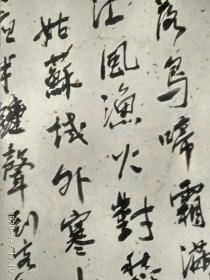 落烏啼霜滿
江風漁火對愁
姑蘇城外寒
半鐘聲到客